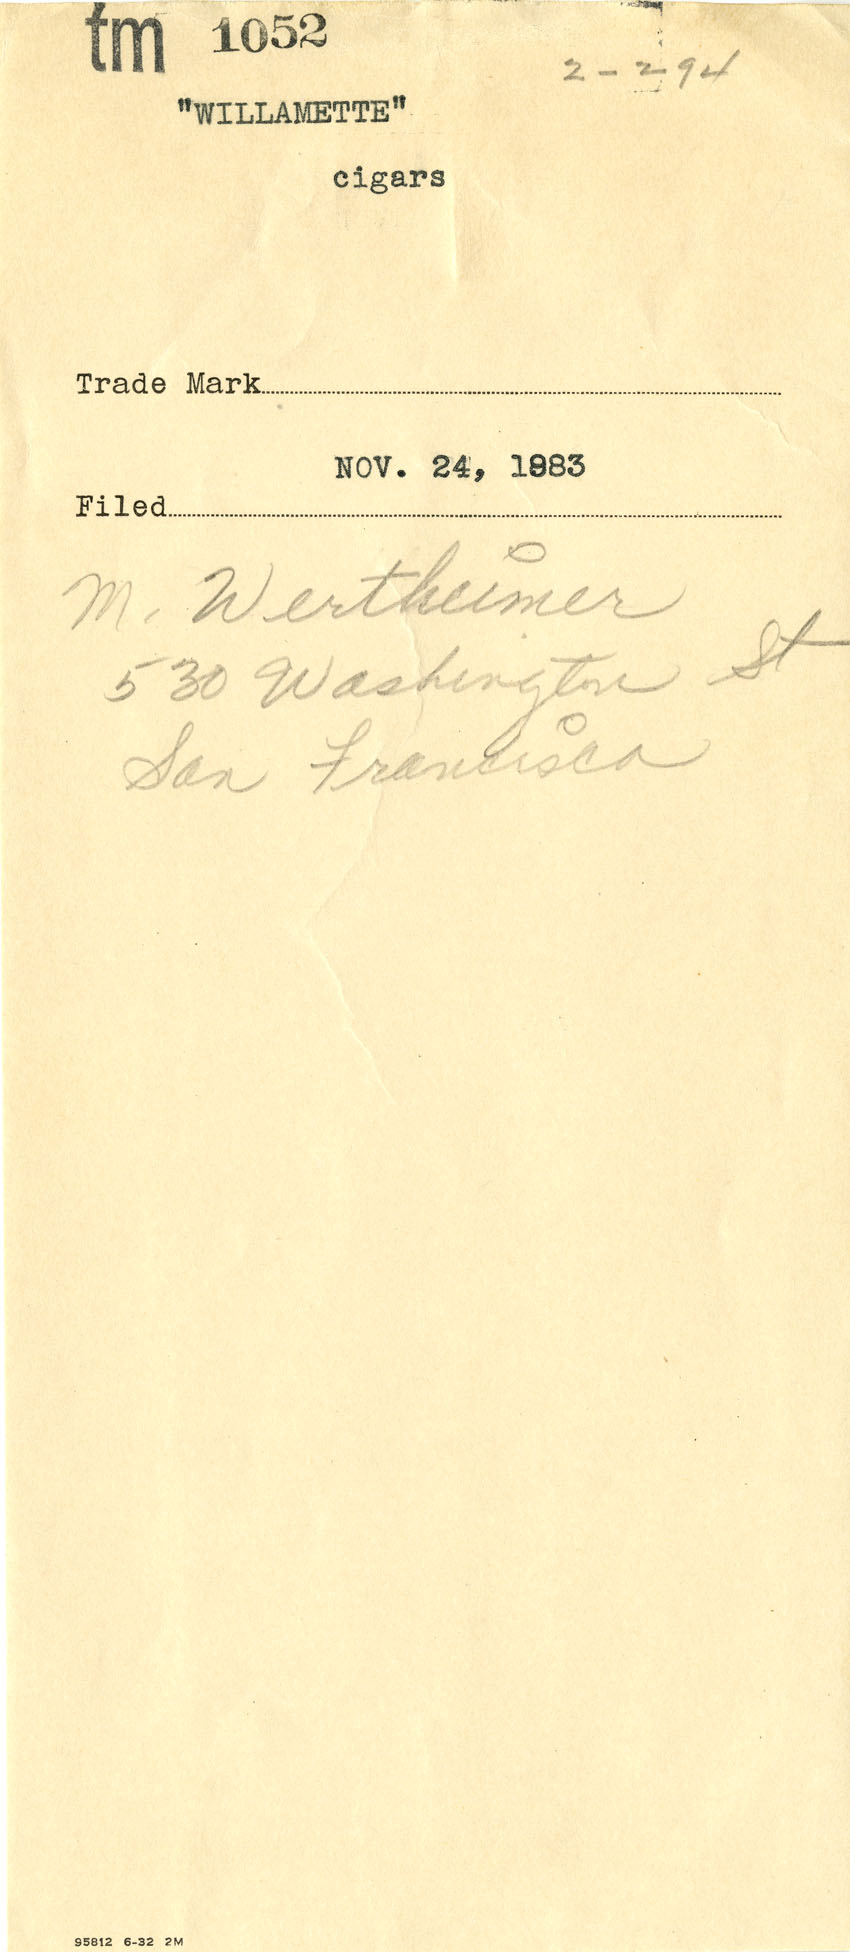 tm 1052
2-294
"WILLAMETTE"
cigars
Trade Mark
NOV. 24, 1983
Filed
M. Wertheimer
530 Washington St
San Francisco
95812 6-32 2M